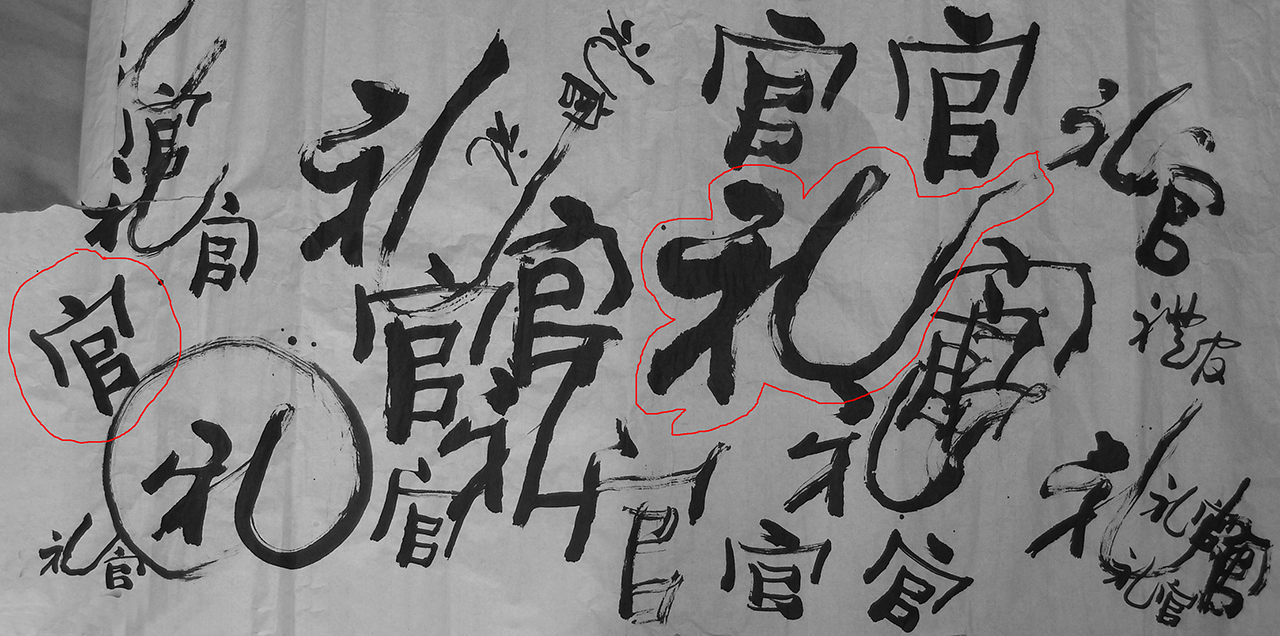 礼官
礼官
官
礼
礼官
礼
官
官
官
礼
官
官
礼
礼
官
官
官
礼官
禮
礼
礼
礼官